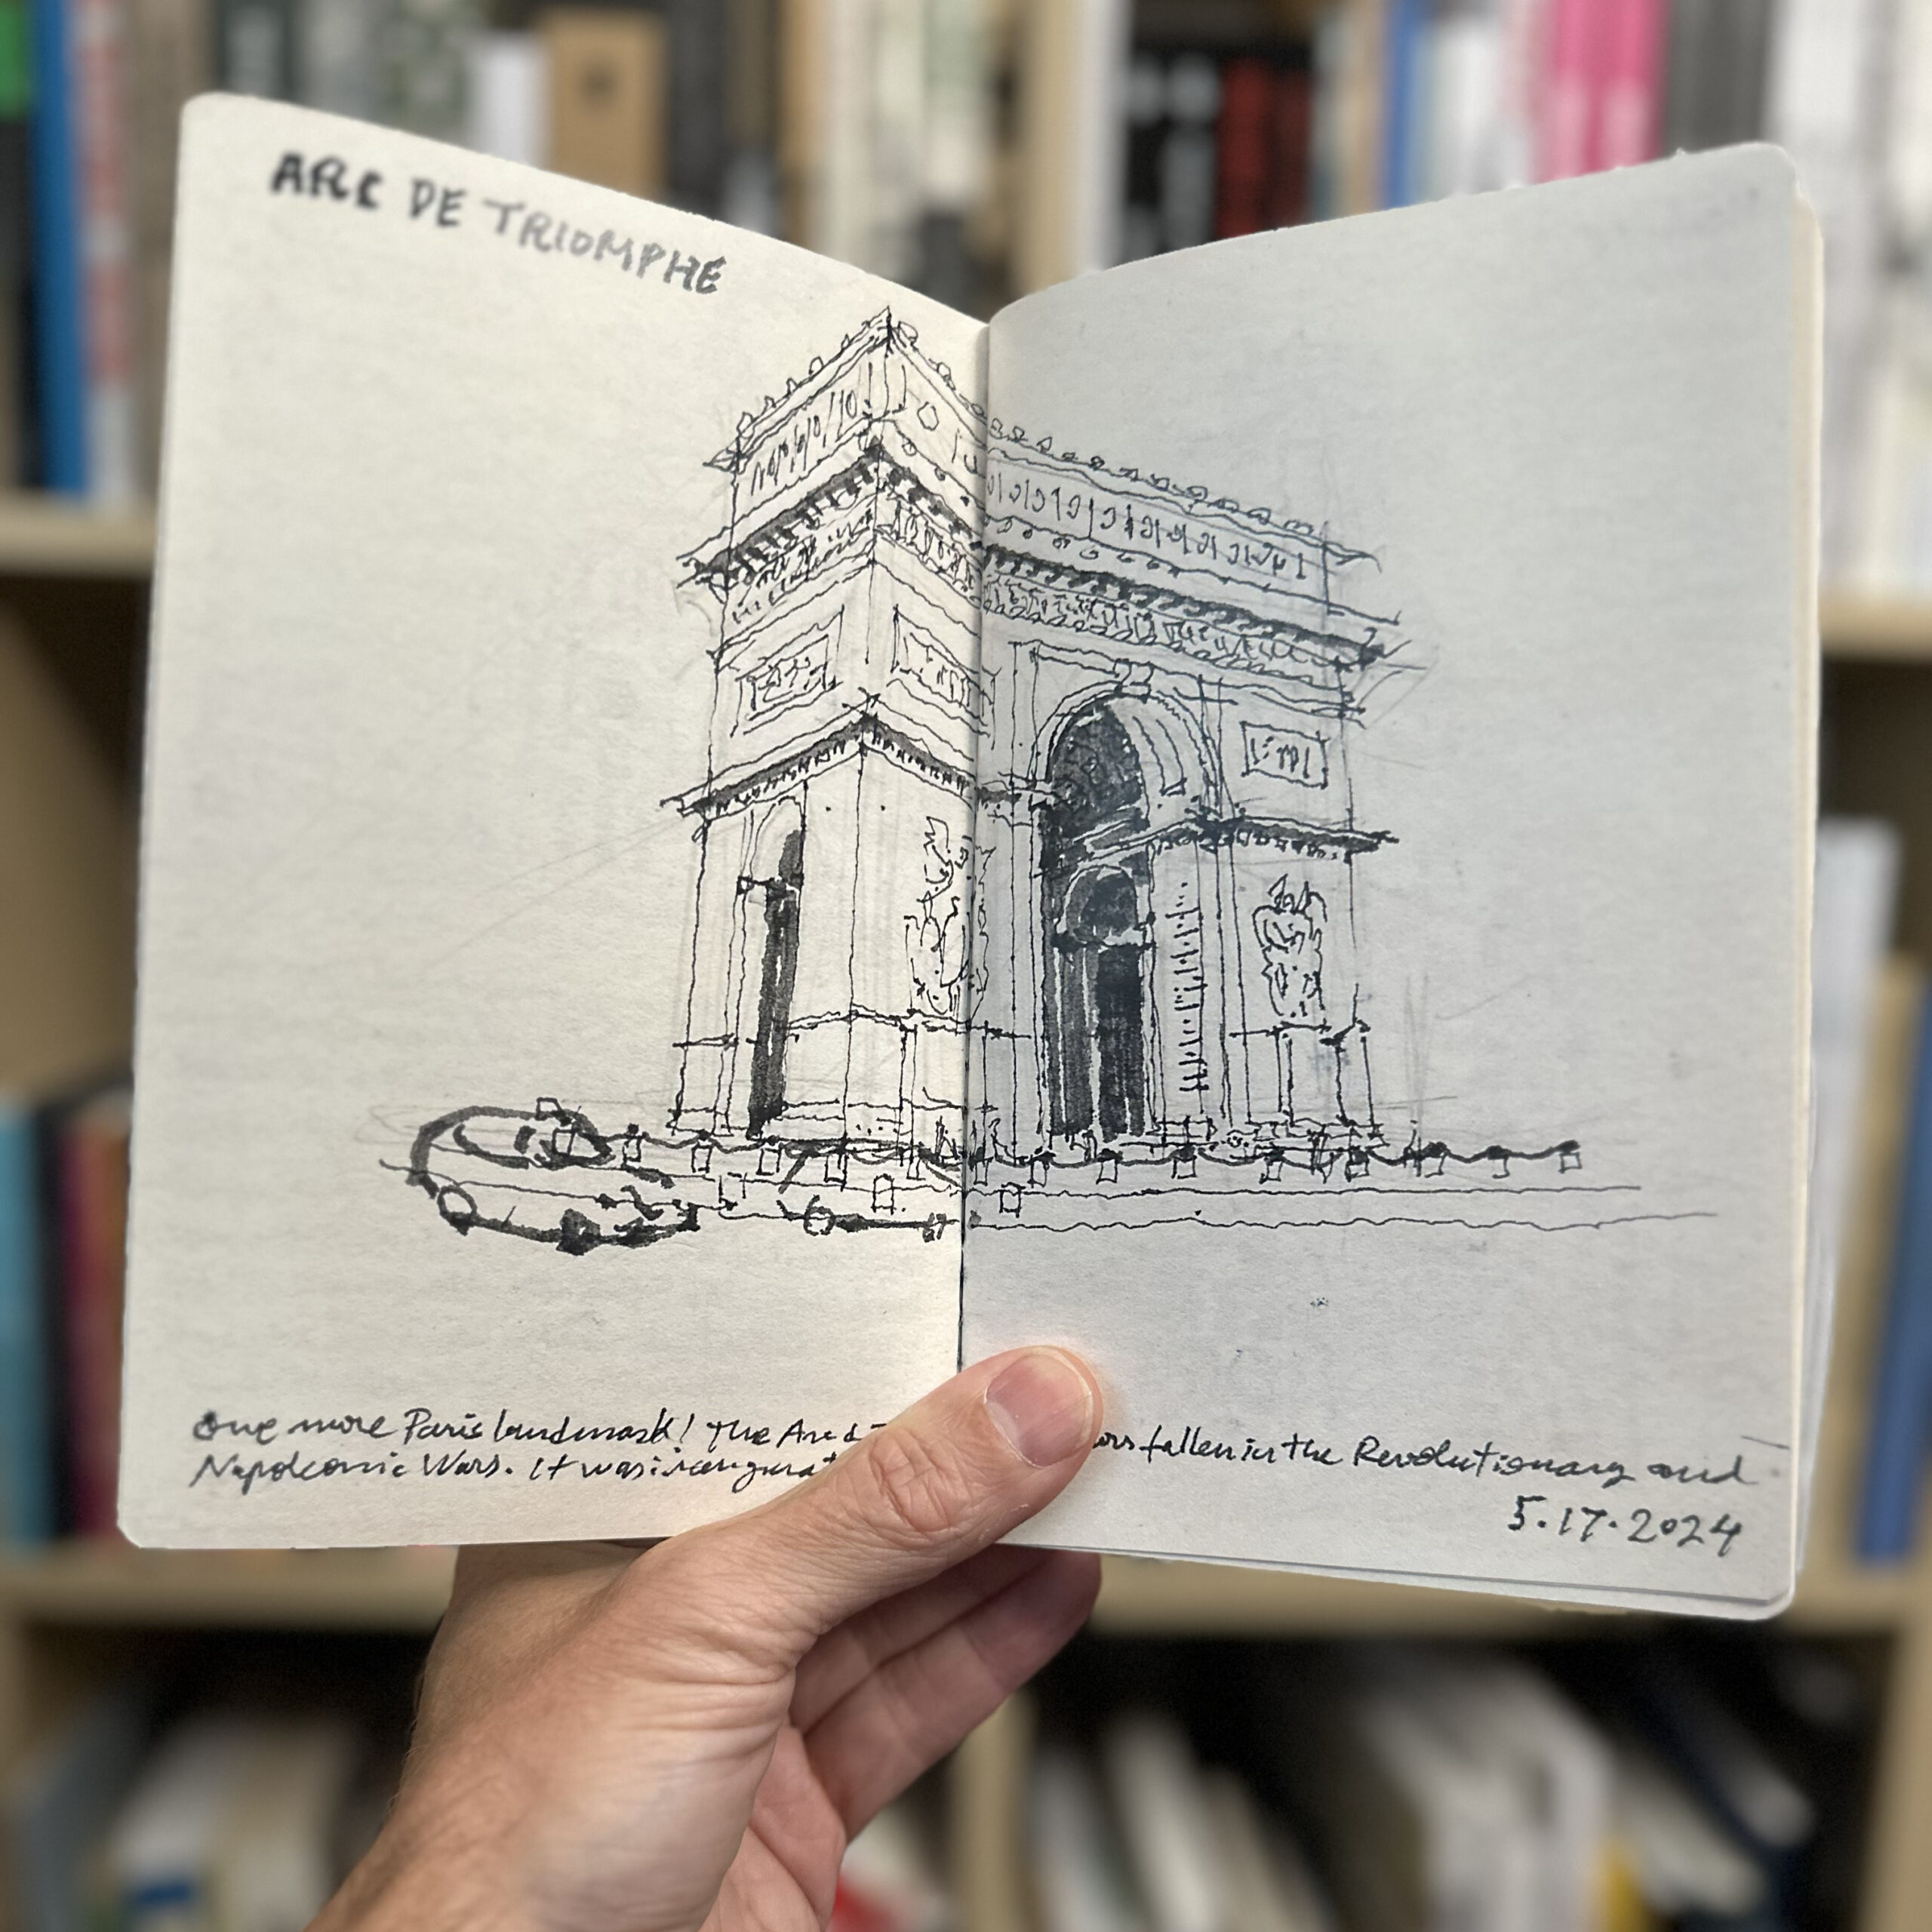 ARC DE TRIOMPHE
One more Paris landmark! The Arc d fallen in the Revolutionary and
Napoleonic Wars. It was inaugurat
5.17.2024